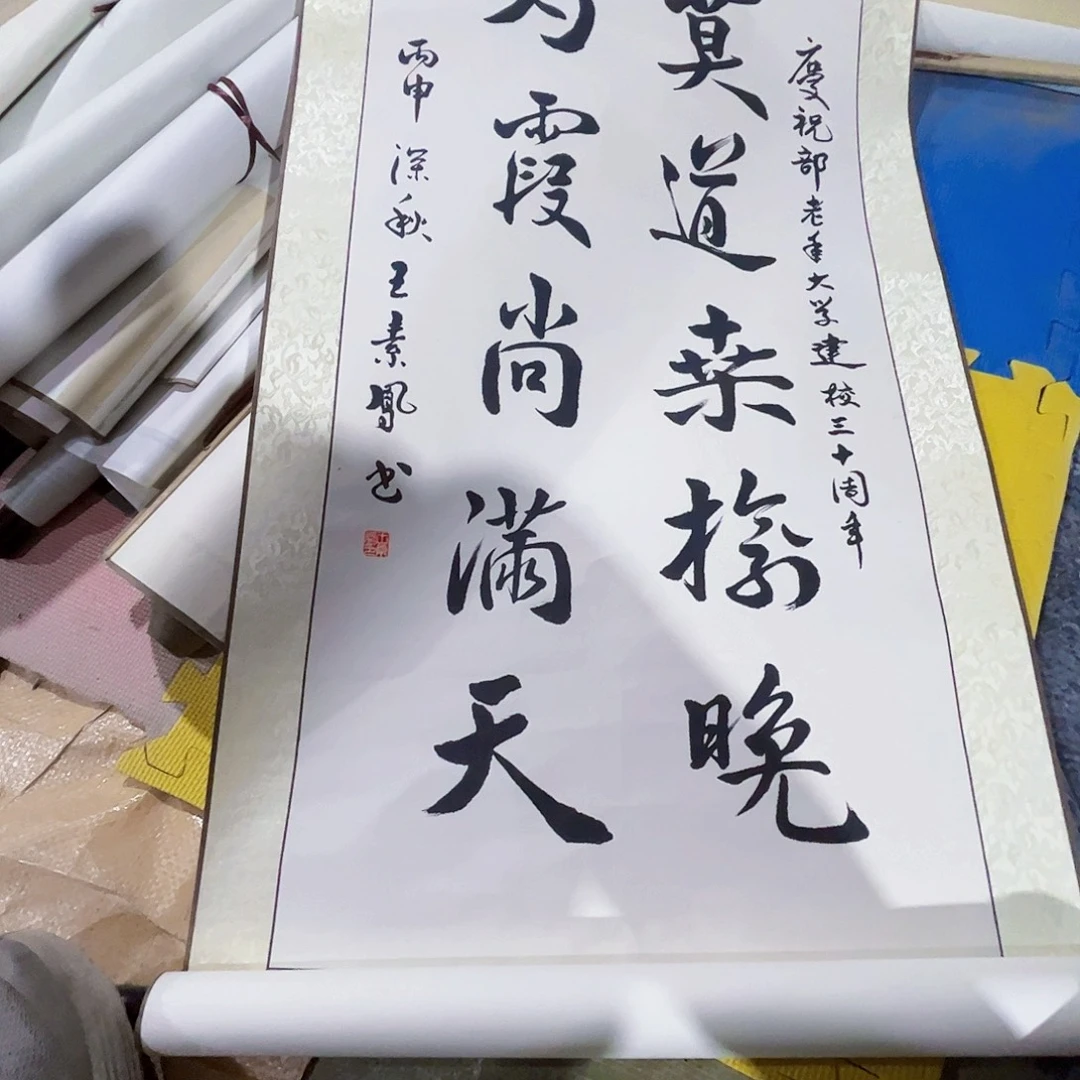 慶祝部老年大学建校三十周年
莫道桑榆晚
为霞尚满天
丙申深秋王素鳳书